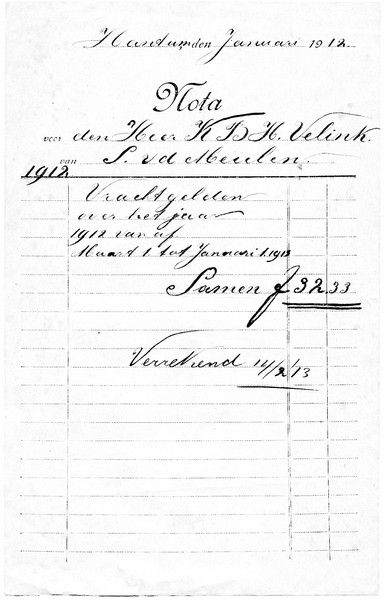 Hantum den Januari 1912
Nota
voor den Heer K B H. Velink.
van S. vd Meulen.
1912
Vrachtgelden
over het jaar
1912 van af
Maart 1 tot Januari 1. 1913
Samen f 32 33
Verrekend 14/2/13